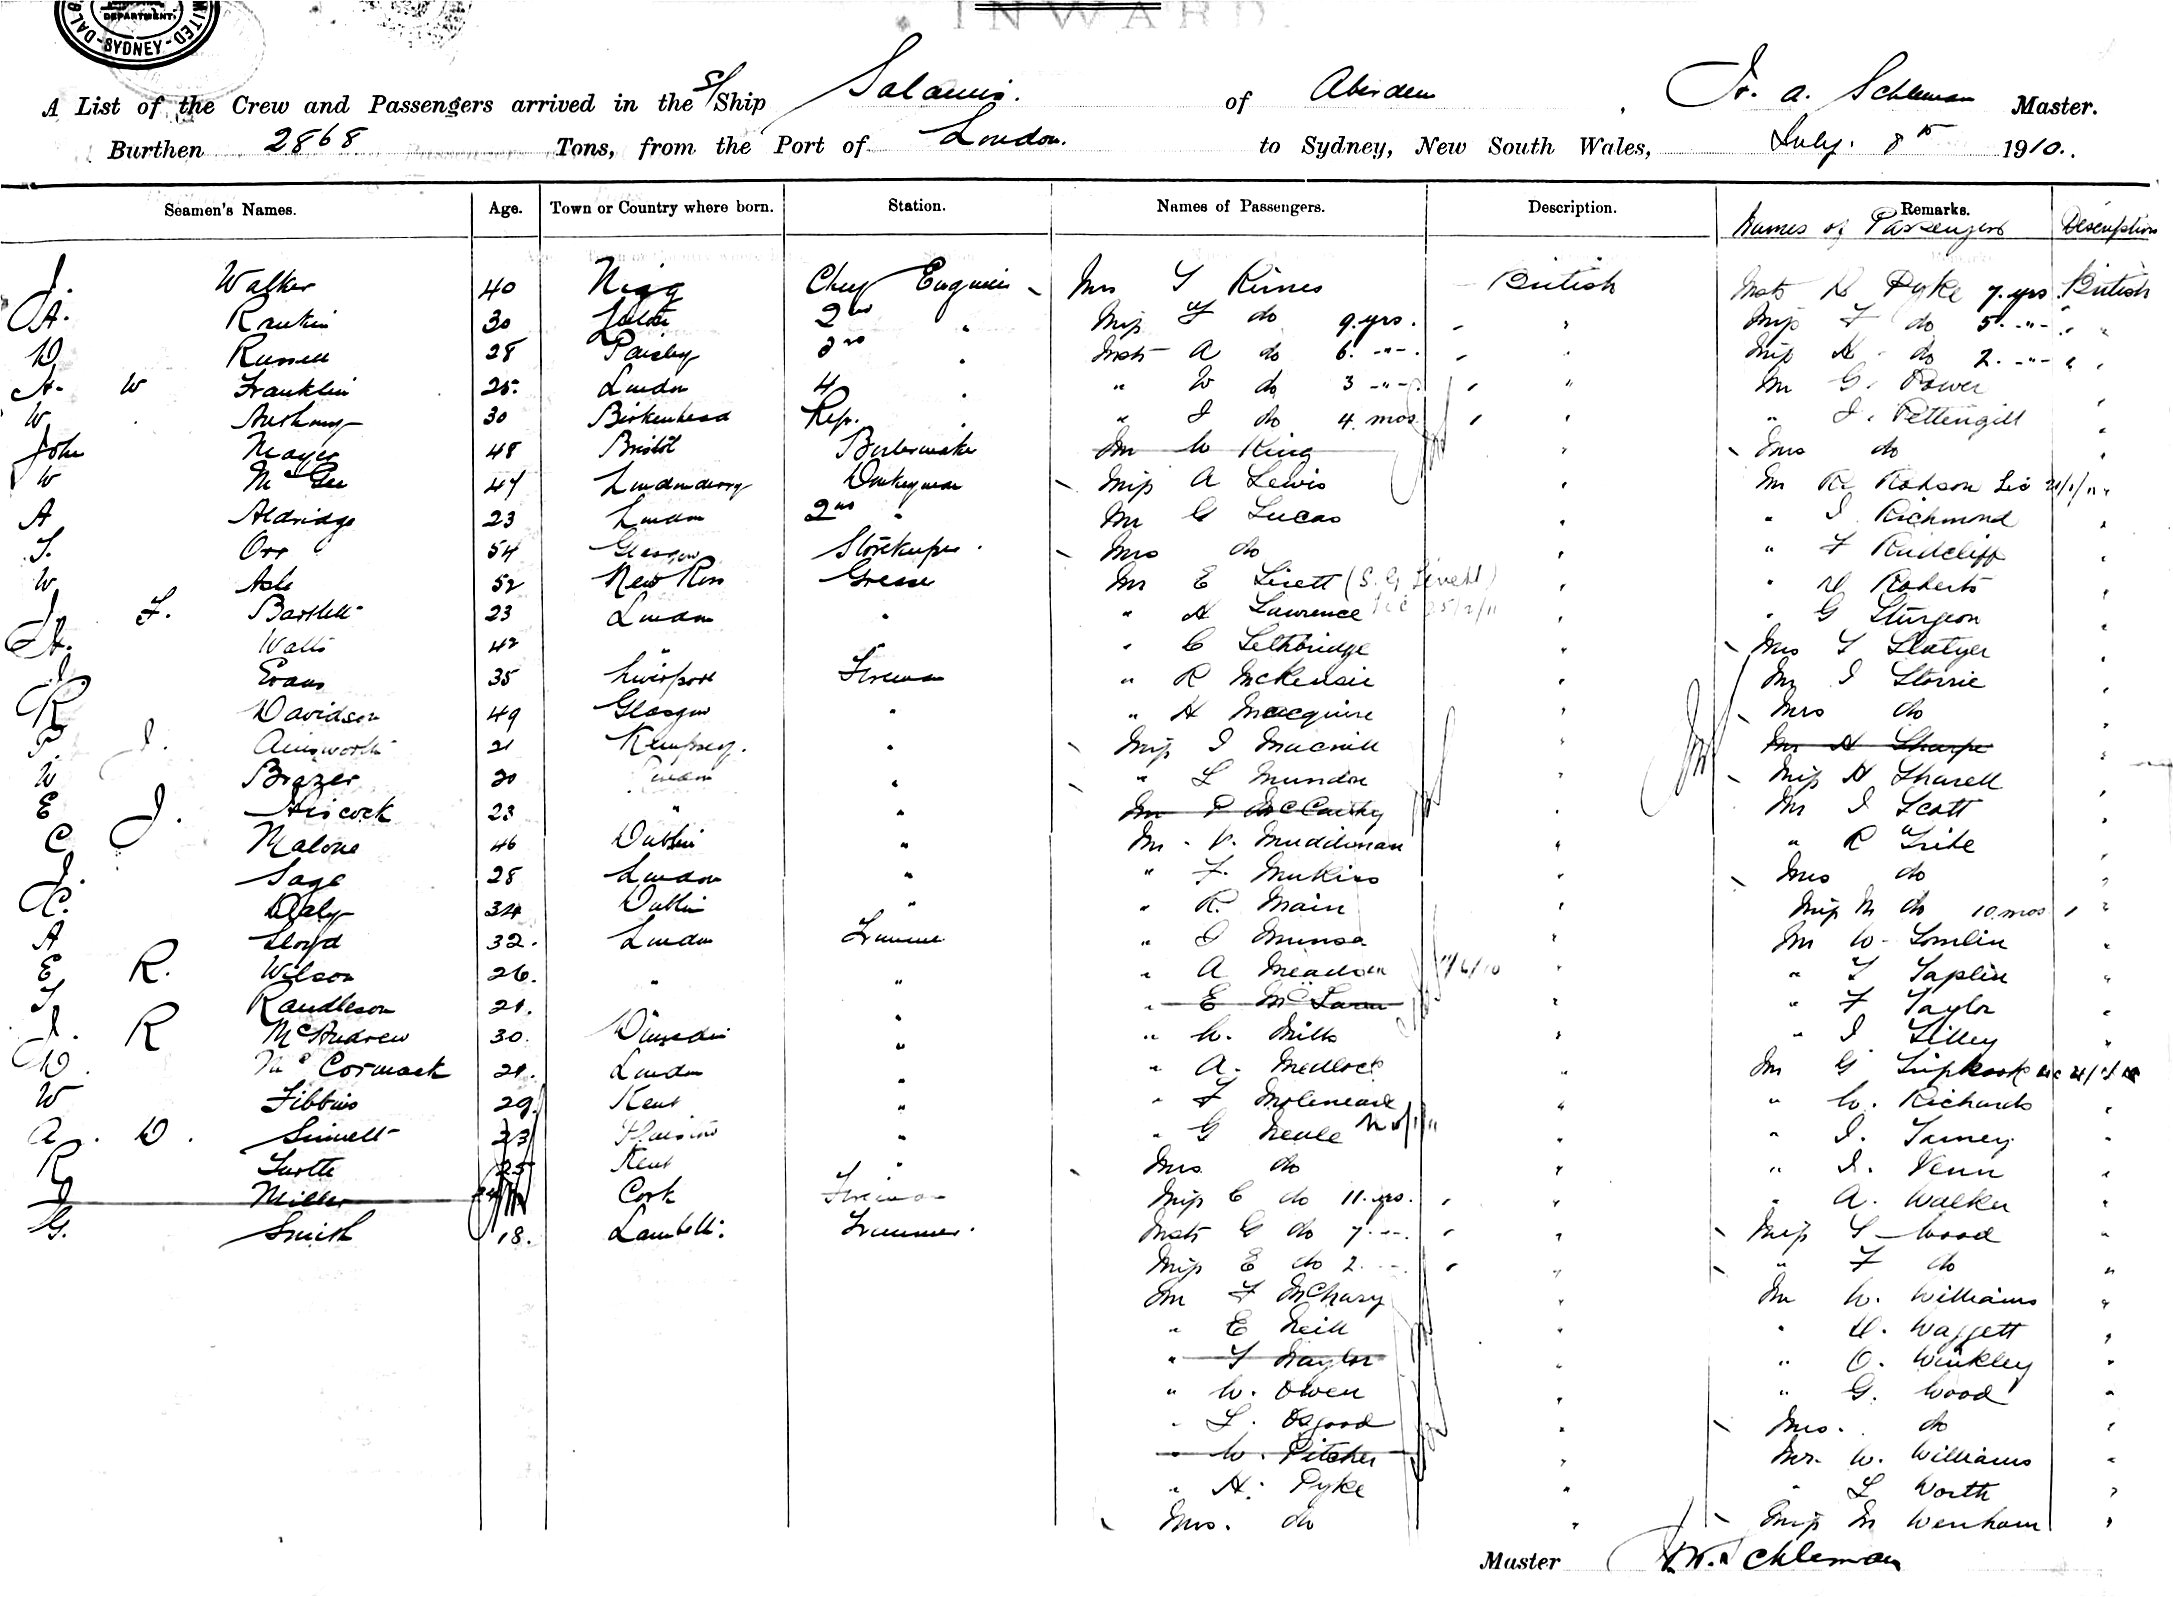 LIMITED
DEPARTMENT.
SYDNEY
INWARD.
A List of the Crew and Passengers arrived in the S/Ship Salamis. of Aberdeen, A. Schleman Master.
Burthen 2868 Tons, from the Port of London. to Sydney, New South Wales, July. 8th 1910.
Seamen's Names. Age. Town or Country where born. Station. Names of Passengers. Description. Remarks.
Names of Passengers Description
J. Walker 40 Nigg Chief Engineer Mrs Kirnes British Mstr H Pyke 7. yrs British
A. Rankin 30 2nd " Miss do 9. yrs. " Miss F do 5. -"- "
D Russell 28 Paisley 3rd " Mstr A do 6. -"-. " Miss H do 2. -"- "
A. W Franklin 25. London 4 " " W do 3 -"-. " Mr G. Power
W Anthony 30 Birkenhead Rep. " " J do 4. mos " " J. Pettengill "
John Mayer 48 Bristol Boilermaker Mr W King " Mrs do "
W McGee 47 Londonderry Donkeyman Miss A Lewis " Mr R Robson "
A Aldridge 23 London 2nd " Mr G Lucas " " J Richmond "
J. Orr 54 Glasgow Storekeeper. Mrs do " " F Radcliff "
W Ash 52 New Ross Greaser Mr E Lisett " " Roberts "
J. F. Bartlett 23 London " " H Lawrence " " G Sturgeon "
A. Watts 42 " " C Lethbridge " Mrs Slatyer "
J Evans 35 Liverpool Fireman " R McKensie " Mr J Storrie "
R Davidson 49 Glasgow " " H Macquire " Mrs do "
P. J. Ainsworth 21 Kempsey. " Miss J " Mr H Sharpe "
W Brazer 20 " " L Mundon " Miss H Sharell "
E J. Hiscock 23 " " Mr P McCarthy " Mr J Scott "
C Malone 46 Dublin " Mr. V. Muddiman " " R Tribe "
J. Sage 28 London " " F. " Mrs do "
C. Daly 34 Dublin " " R. Main " Miss M do 10. mos "
A Lloyd 32. London Trimmer " J " Mr W. Tomlin "
E R. Wilson 26. " " " A Meadow " " Taplin "
Randleson 21. " " E " " F Taylor "
J. R McAndrew 30. Dunedin " " W. Mills " " J. Lilley "
D. McCormack 21. London " " A. Medlock " Mr G
W Fibbins 29. Kent " " F " " W. Richards "
A. D. Sinnett 23 " " G Neale " " J. "
R Turtle 25 Kent " Mrs. do " " J. Venn "
J Miller Cork Fireman Miss C do 11. yrs. " " A. Walker
G. Smith 18. Lambeth. Trimmer. Mstr G do 7. -"-. " Miss Wood "
Miss E do 2. -"-. " " F do "
Mr F " Mr W. Williams "
" E Neill " " Waggett "
" Naylor " " O. Winkley "
" W. Owen " " G. Wood "
" L. Osgood " Mrs. do "
" W. Pitcher " Mr. W. Williams "
" H. Pyke " " L Worth "
Mrs. do " Miss M Wenham "
Master Schleman